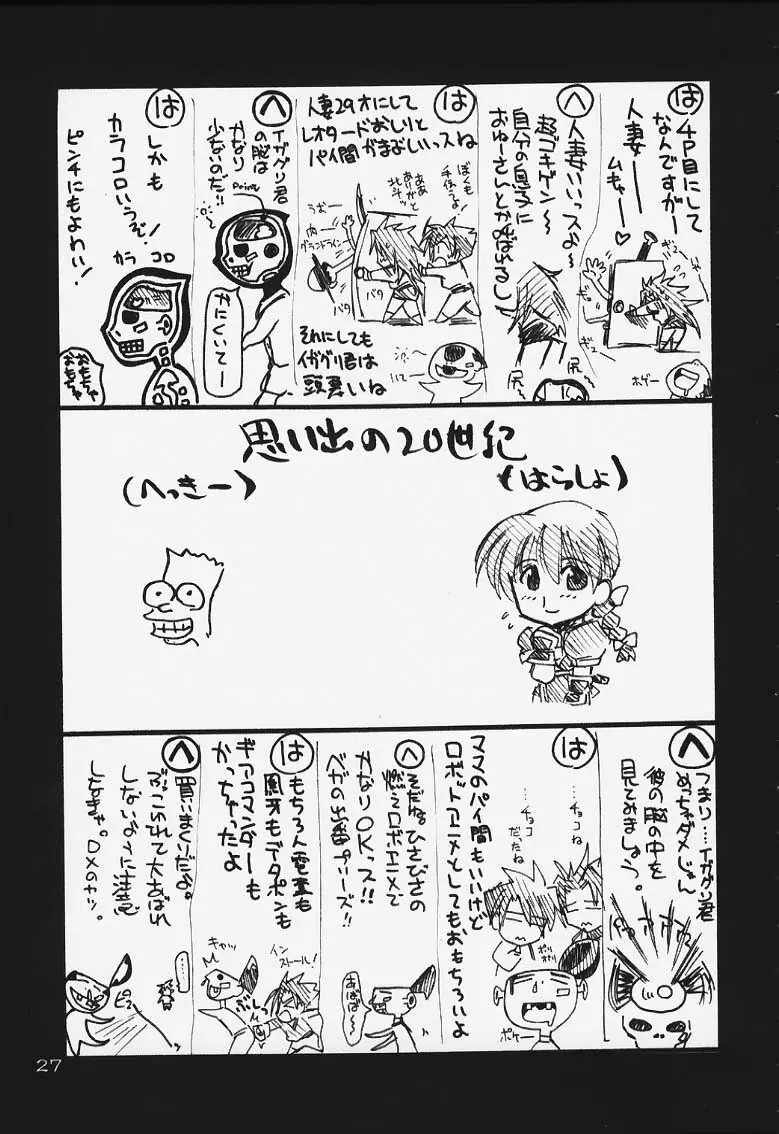 は
4P目にして
なんですがー
人妻ーー
ムキャー♡
ギュー
ギュ
ホゲー
へ
人妻いいっスよ〜
超ゴキゲン〜
自分の息子に
おゅーさんとかよばれるし
尻
尻
は
人妻29才にして
レオタードおしりと
パイ間かまぼいいっスね
ぼくも
手伝うよ!
ああ
北斗ッ
うおー
グランドライン
バタ
バタ
それにしても
イガグリ君は
頭悪いね
へ
イガグリ君
の脳は
かなり
少ないのだ!!
Point
かにくいてー
は
しかも
カラコロいうぞ!
ピンチにもよわい!
カラ コロ
おもちゃ
おもちゃ
思い出の20世紀
(はらしょ)
(へっきー)
へ
つまり…イガグリ君
めっちゃダメじゃん
彼の脳の中を
見てみましょう。
は
…チョコね
…チョコ
だったね
ママのパイ間もいいけど
ロボットアニメとしてもおもちろいよ
ポケー
へ
そだね。ひさびさの
燃えロボアニメで
かなりOKっス!!
ベガの出番プリーズ!!
あばば〜
は
もちろん電童も
凰牙もデータポンも
ギアコマンダーも
かっちゃったよ
キャッ
インストール!
へ
買いまくりだよ。
ぶっこわれて大あばれ
しないように注意
しなきゃ。DXのヤツ。
ピュー
27